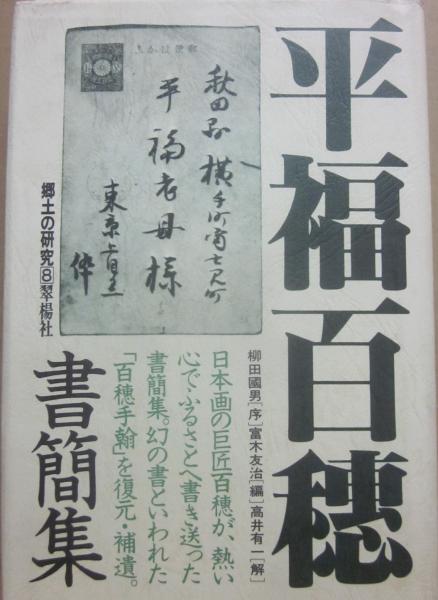 平福百穂
書簡集
柳田國男[序]富木友治[編]高井有一[解]
日本画の巨匠百穂が、熱い
心でふるさとへ書き送った
書簡集。幻の書といわれた
「百穂手翰」を復元・補遺。
郵便はかき
秋田縣横手町
平福老母様
東京
倅
郷土の研究[8]翠楊社